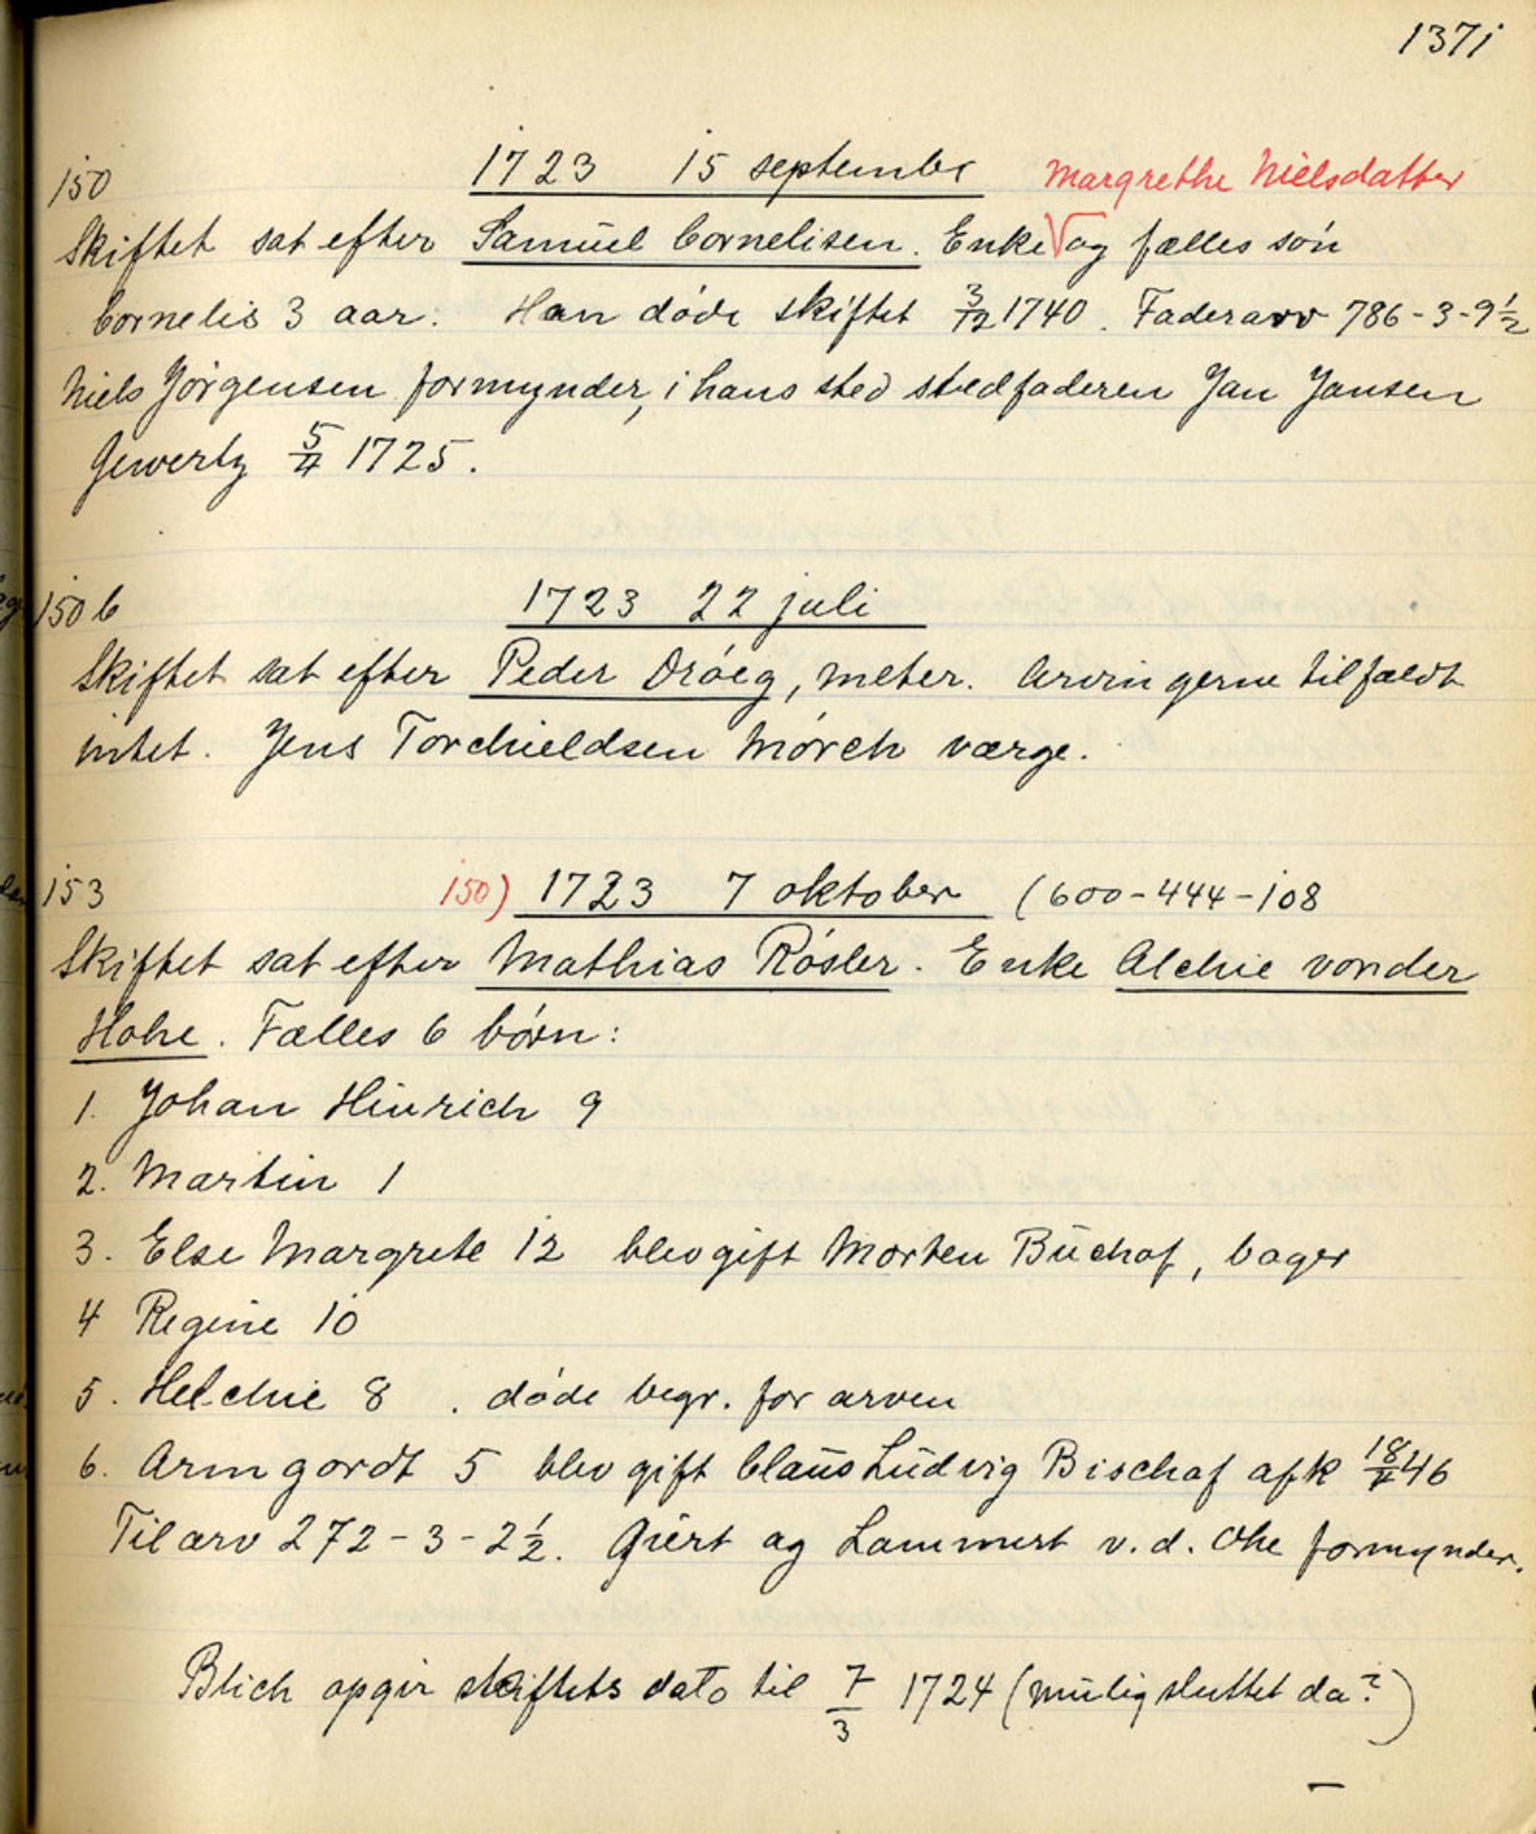 1371
150 1723 15 september Margrethe Nielsdatter
Skiftet sat efter Samuel Cornelisen. Enke √ og fælles søn
Cornelis 3 aar. Han døde skiftet 3/12 1740. Faderarv 786-3-9½
Niels Jørgensen formynder, i hans sted stedfaderen Jan Jansen
Gewertz 5/4 1725.
150 b 1723 22 juli
Skiftet sat efter Peder Drøeg, meter. Arvingerne tilfaldt
intet. Jens Torchieldsen Mørch værge.
153 150) 1723 7 oktober (600-444-108
Skiftet sat efter Mathias Røsler. Enke Alchie vonder
Hohe. Fælles 6 børn:
1. Johan Hinrich 9
2. Martin 1
3. Else Margrete 12 blev gift Morten Buchof, bager
4 Regine 10
5. Helchie 8 . døde begr. for arven
6. Armgordt 5 blev gift Claus Ludvig Bischof afk 18/4 46
Til arv 272-3-2½. Giert og Lammert v.d. Ohe formynder.
Blich opgir skiftets dato til 7/3 1724 (mulig sluttet da?)